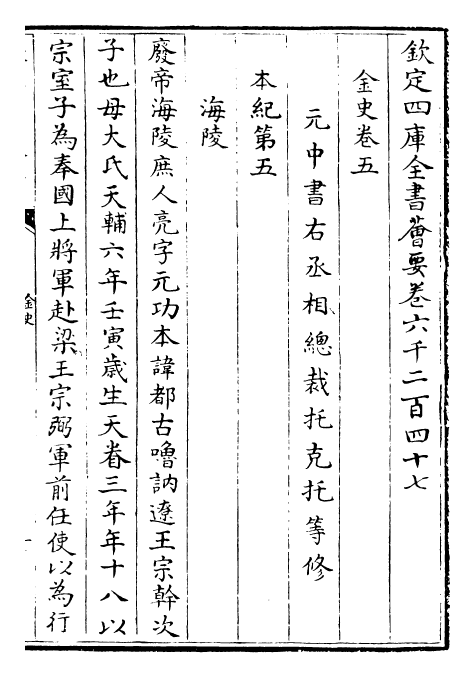 欽定四庫全書薈要卷六千二百四十七
金史卷五
元中書右丞相總裁托克托等修
本紀第五
海陵
廢帝海陵庶人亮字元功本諱都古嚕訥遼王宗幹次
子也母大氏天輔六年壬寅歲生天眷三年年十八以
宗室子為奉國上將軍赴梁王宗弼軍前任使以為行
金史